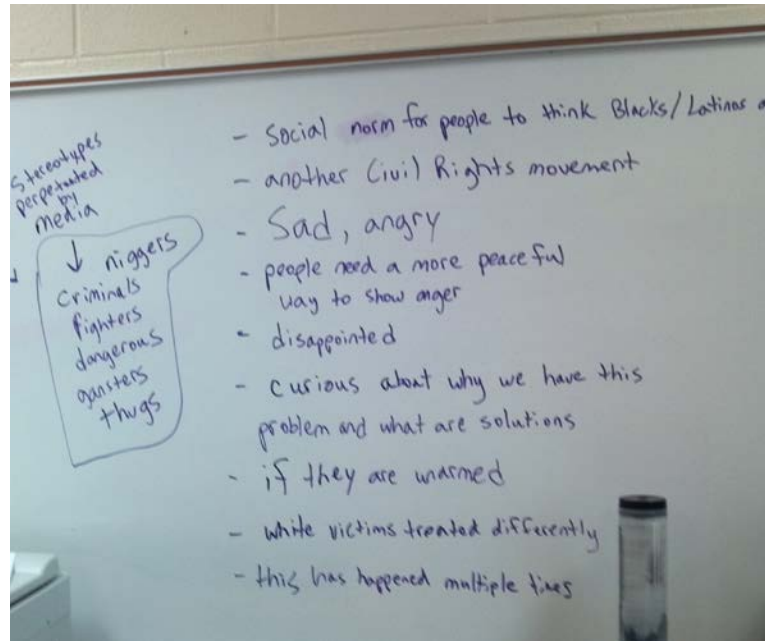 Stereotypes
perpetuated
by
media
↓ niggers
criminals
fighters
dangerous
gansters
thugs
- Social norm for people to think Blacks/Latinos
- another Civil Rights movement
- Sad, angry
- people need a more peaceful
way to show anger
- disappointed
- curious about why we have this
problem and what are solutions
- if they are unarmed
- white victims treated differently
- this has happened multiple times